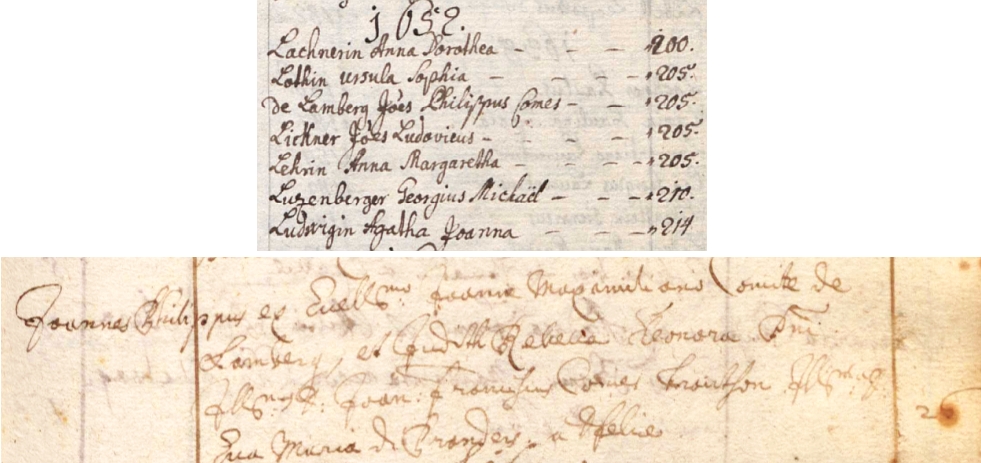 1652.
Lachnerin Anna Dorothea - - - 200.
Lothin Ursula Sophia - - - 205.
de Lamberg Joes Philippus Comes - - 205.
Lickner Joes Ludovicus - - - 205.
Lehrin Anna Margaretha - - - 205.
Luzenberger Georgius Michaël - - - 210.
Ludwigin Agatha Joanna - - - 214
Joannes Philippus ex Excellmo Joanne Maximiliano Comite de
Lamberg, et Judith Rebecca Eleonora
Joan: Franciscus Comes Trauthson
Eua Maria de